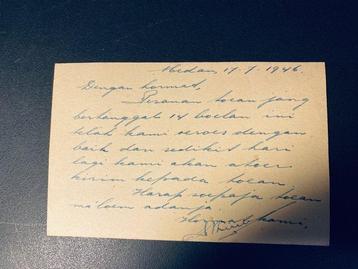 Medan, 17/7/1946.
Dengan hormat,
Pesanan toean jang
bertanggal 14 boelan ini
telah kami oeroes dengan
baik dan sedikit hari
lagi kami akan atoer
kirim kepada toean
Harap soepaja toean
ma'loem adanja.
Hormat kami,